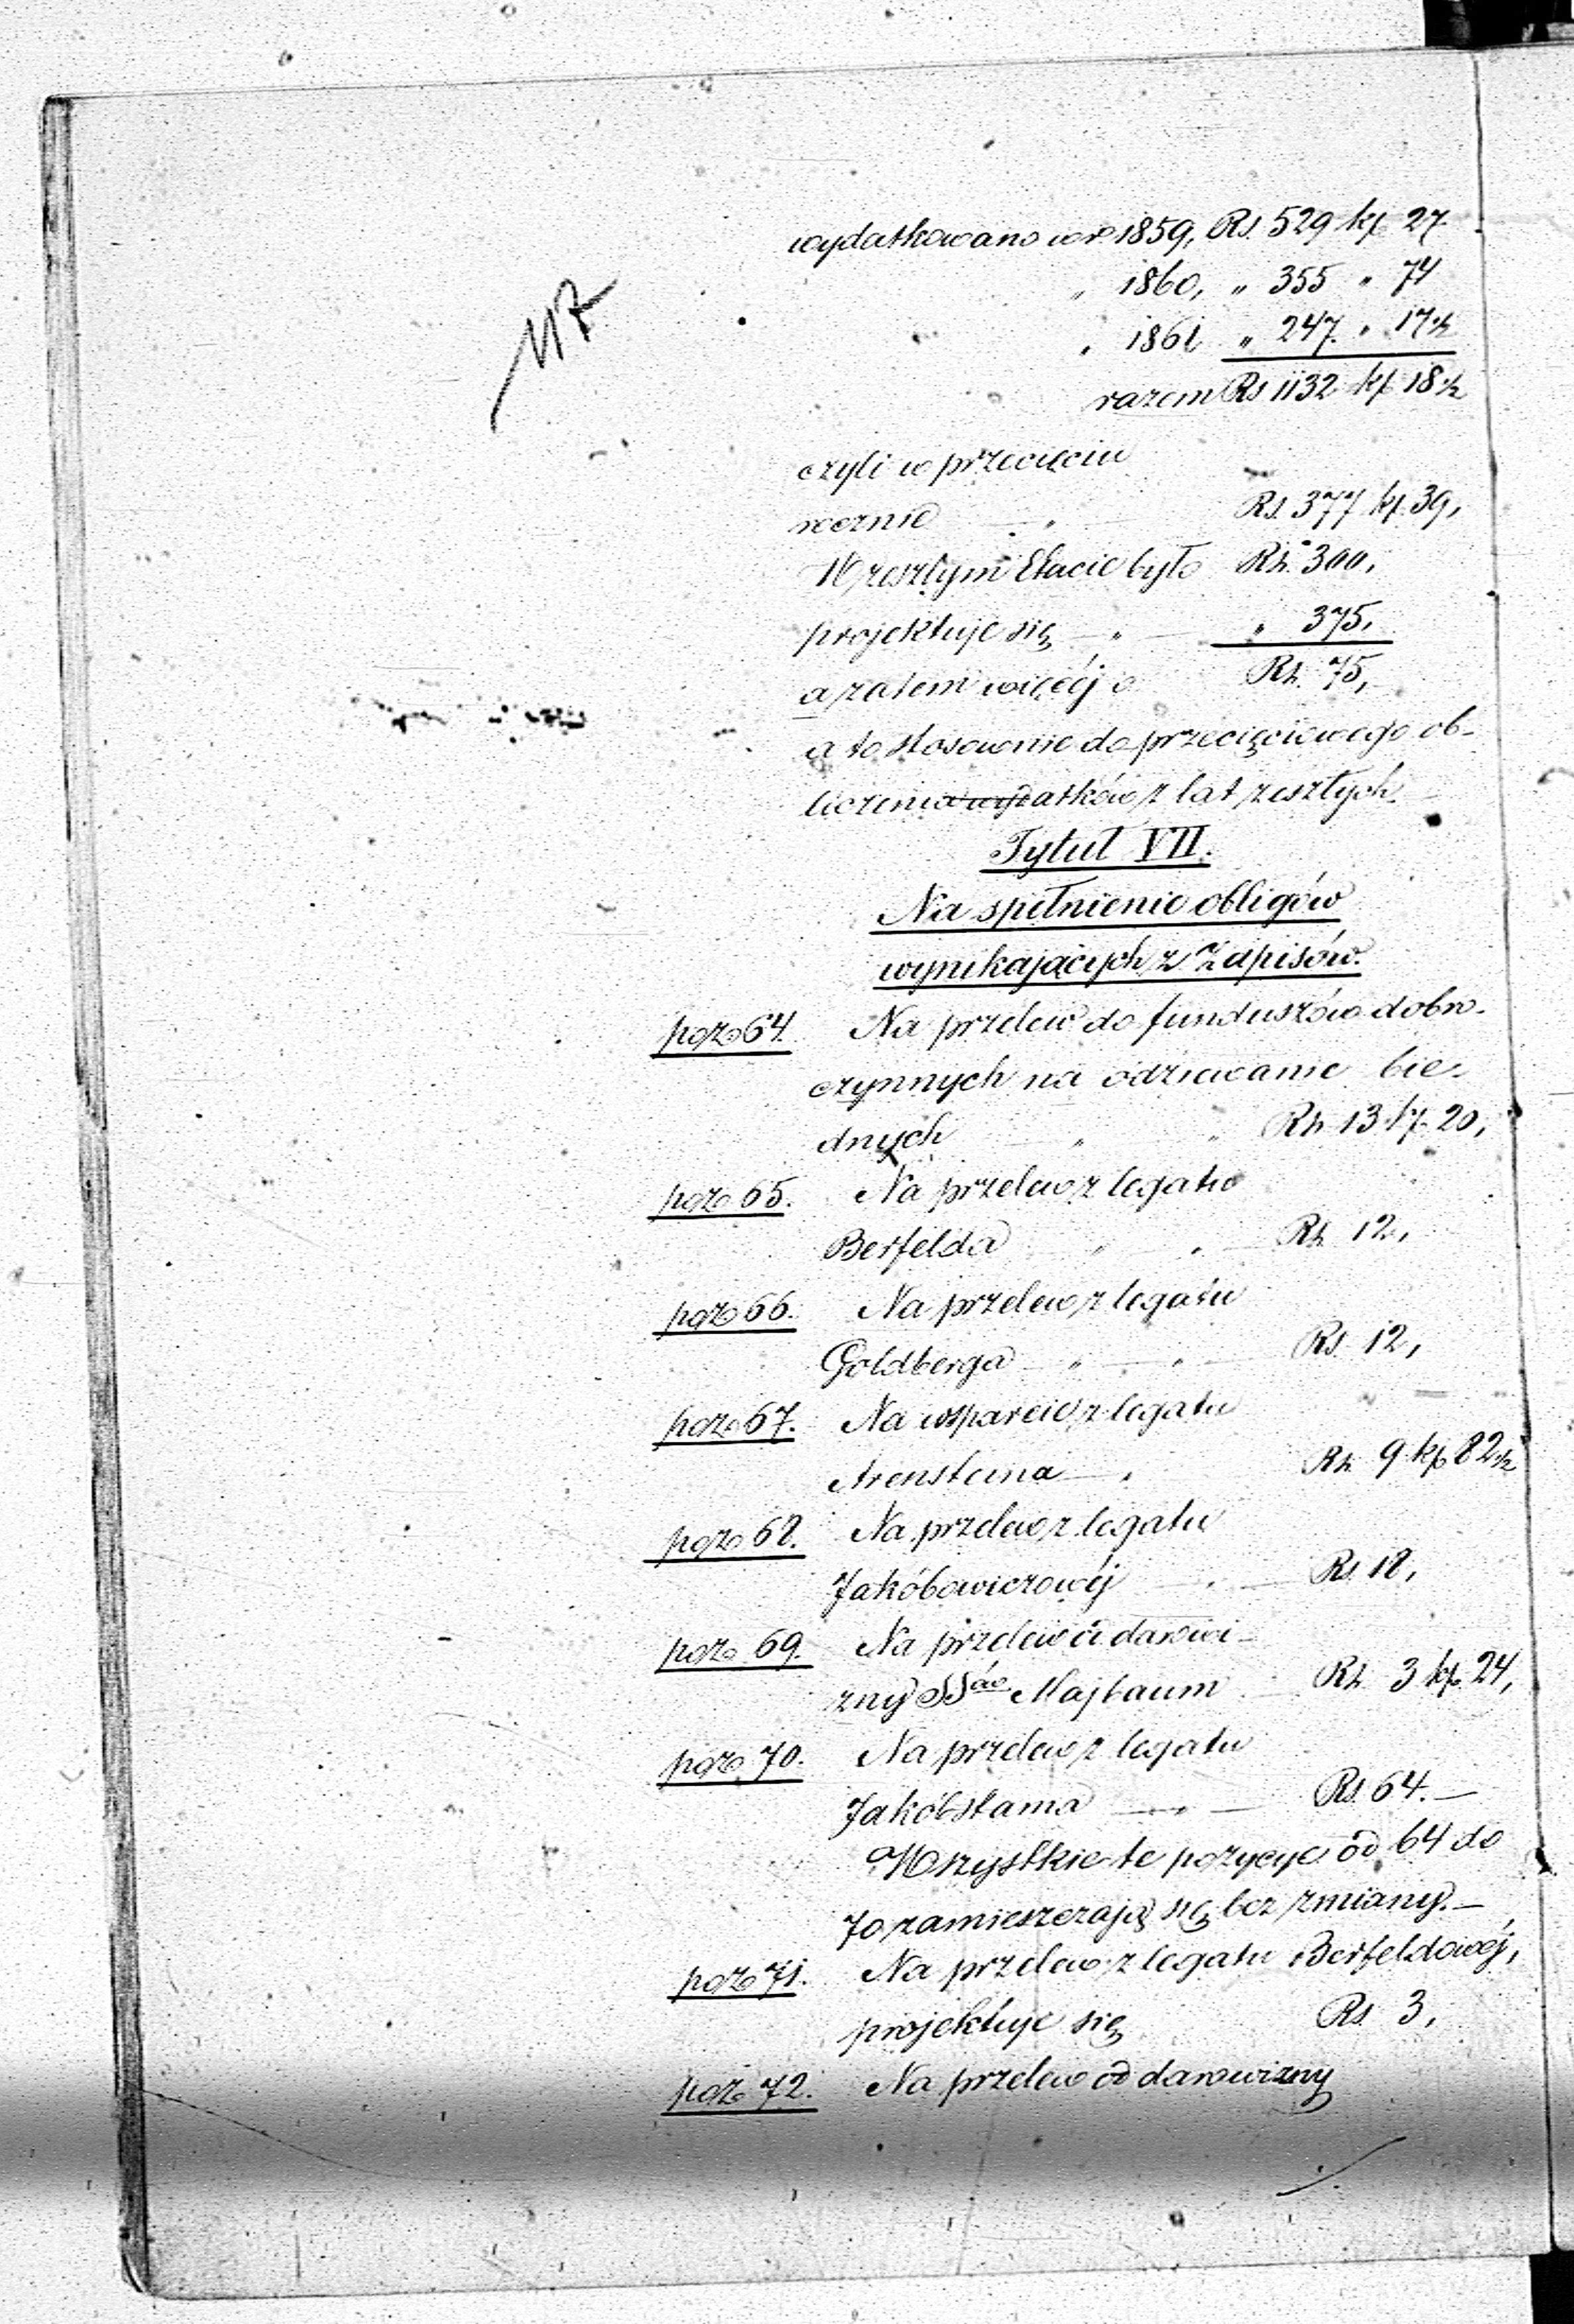 wydatkowano w r. 1859, Rs. 529 kp 27
„ 1860, „ 355 „ 74
„ 1861 „ 247. „ 17½
razem Rs 1132 kp 18½
czyli w przecięciu
rocznie „ Rs. 377 kp. 39,
W zeszłym Etacie było Rs. 300,
projektuje się „ „ 375,
a zatem więcéj o Rs. 75,
a to stosownie do przecięciowego ob-
liczenia wydatków z lat zeszłych.
Tytuł VII.
Na spełnienie obligów
wynikających z Zapisów.
poz. 64. Na przelew do funduszów dobro-
czynnych na odziewanie bie-
dnych „ „ Rs. 13 kp. 20,
poz. 65. Na przelew z legatu
Berfelda „ „ Rs. 12,
poz. 66. Na przelew z legatu
Goldberga „ „ Rs. 12,
poz. 67. Na wsparcie z legatu
Arensteina „ Rs. 9 kp 82½
poz. 68. Na przelew z legatu
Jakóbowiczowéj „ Rs. 18,
poz. 69. Na przelew od darowi-
zny SSów Majbaum Rs. 3 kp. 24,
poz. 70. Na przelew z legatu
Jakóbstama „ Rs. 64.—
Wszystkie te pozycye od 64 do
70 zamieszczają się bez zmiany.—
poz. 71. Na przelew z legatu Berfeldowéj,
projektuje się Rs. 3,
poz. 72. Na przelew od darowizny